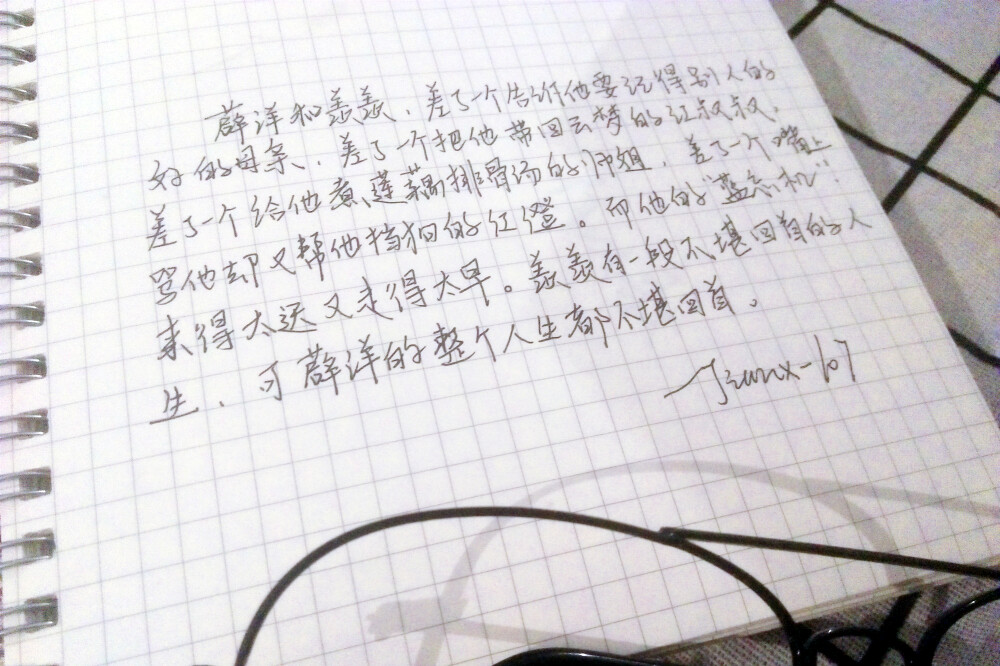 薛洋和羡羡，差了一个告诉他要记得别人的
好的母亲，差了一个把他带回云梦的江叔叔，
差了一个给他煮莲藕排骨汤的师姐，差了一个嘴上
骂他却又帮他挡狗的江澄。而他的蓝忘机
来得太迟又走得太早。羡羡有一段不堪回首的人
生，可薛洋的整个人生都不堪回首。